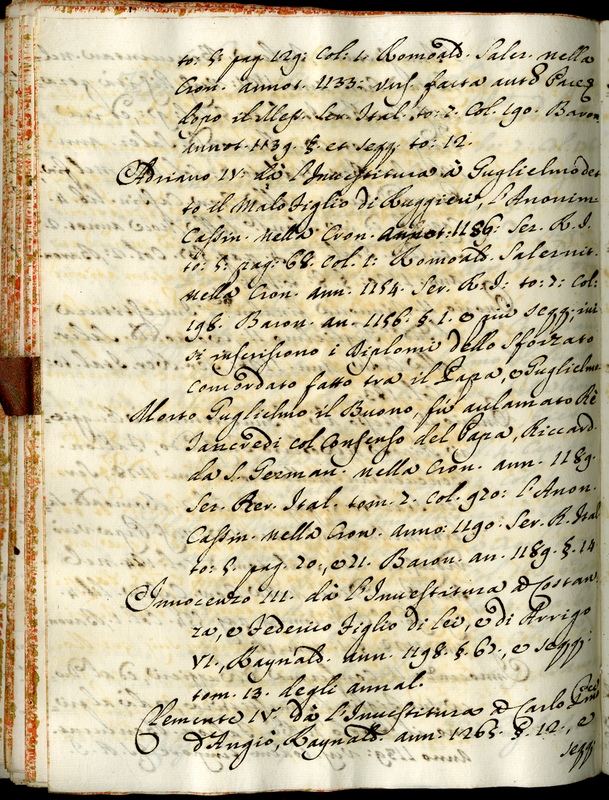 to: 5: pag. 129: Col: 1. Romoald. Saler. nella
Cron. annot. 1133. facta
dopo il Ital. to: 7. Col. 190. Baron.
annot. 1139. §. et seqq. to: 12.
Adriano IV: dà l'Investitura à Guglielmo det
to il Malo figlio di Ruggieri, l'Anonim.
Cassin. nella Cron. 1186: Scr. R. I.
to: 5: pag: 68. Col. 1: Romoald. Salernit.
nella Cron. ann. 1154. Scr. R. I: to: 7: Col:
198. Baron. an. 1156. §. 1. e più seqq; ivi
si inseriscono i Diplomi dello sforzato
concordato fatto tra il Papa, e Guglielmo.
Morto Guglielmo il Buono, fù acclamato Rè
Tancredi col Consenso del Papa, Riccard.
da S. German. nella Cron. ann. 1189.
Scr. Rer. Ital. tom. 7. Col. 970: l'Anon.
Cassin. nella Cron. anno: 1190. Scr. R. Ital
to: 5. pag. 70:, e 71. Baron. an. 1189. §. 14
Innocenzo III. dà l'Investitura à Costan
za, e Federico figlio di lei, e di Arrigo
VI., Raynald. ann. 1198. §. 67., e seqq:
tom. 13. degli annal.
Clemente IV. dà l'Investitura à Carlo
d'Angiò, Raynald. ann. 1265. §. 12., e
seqq